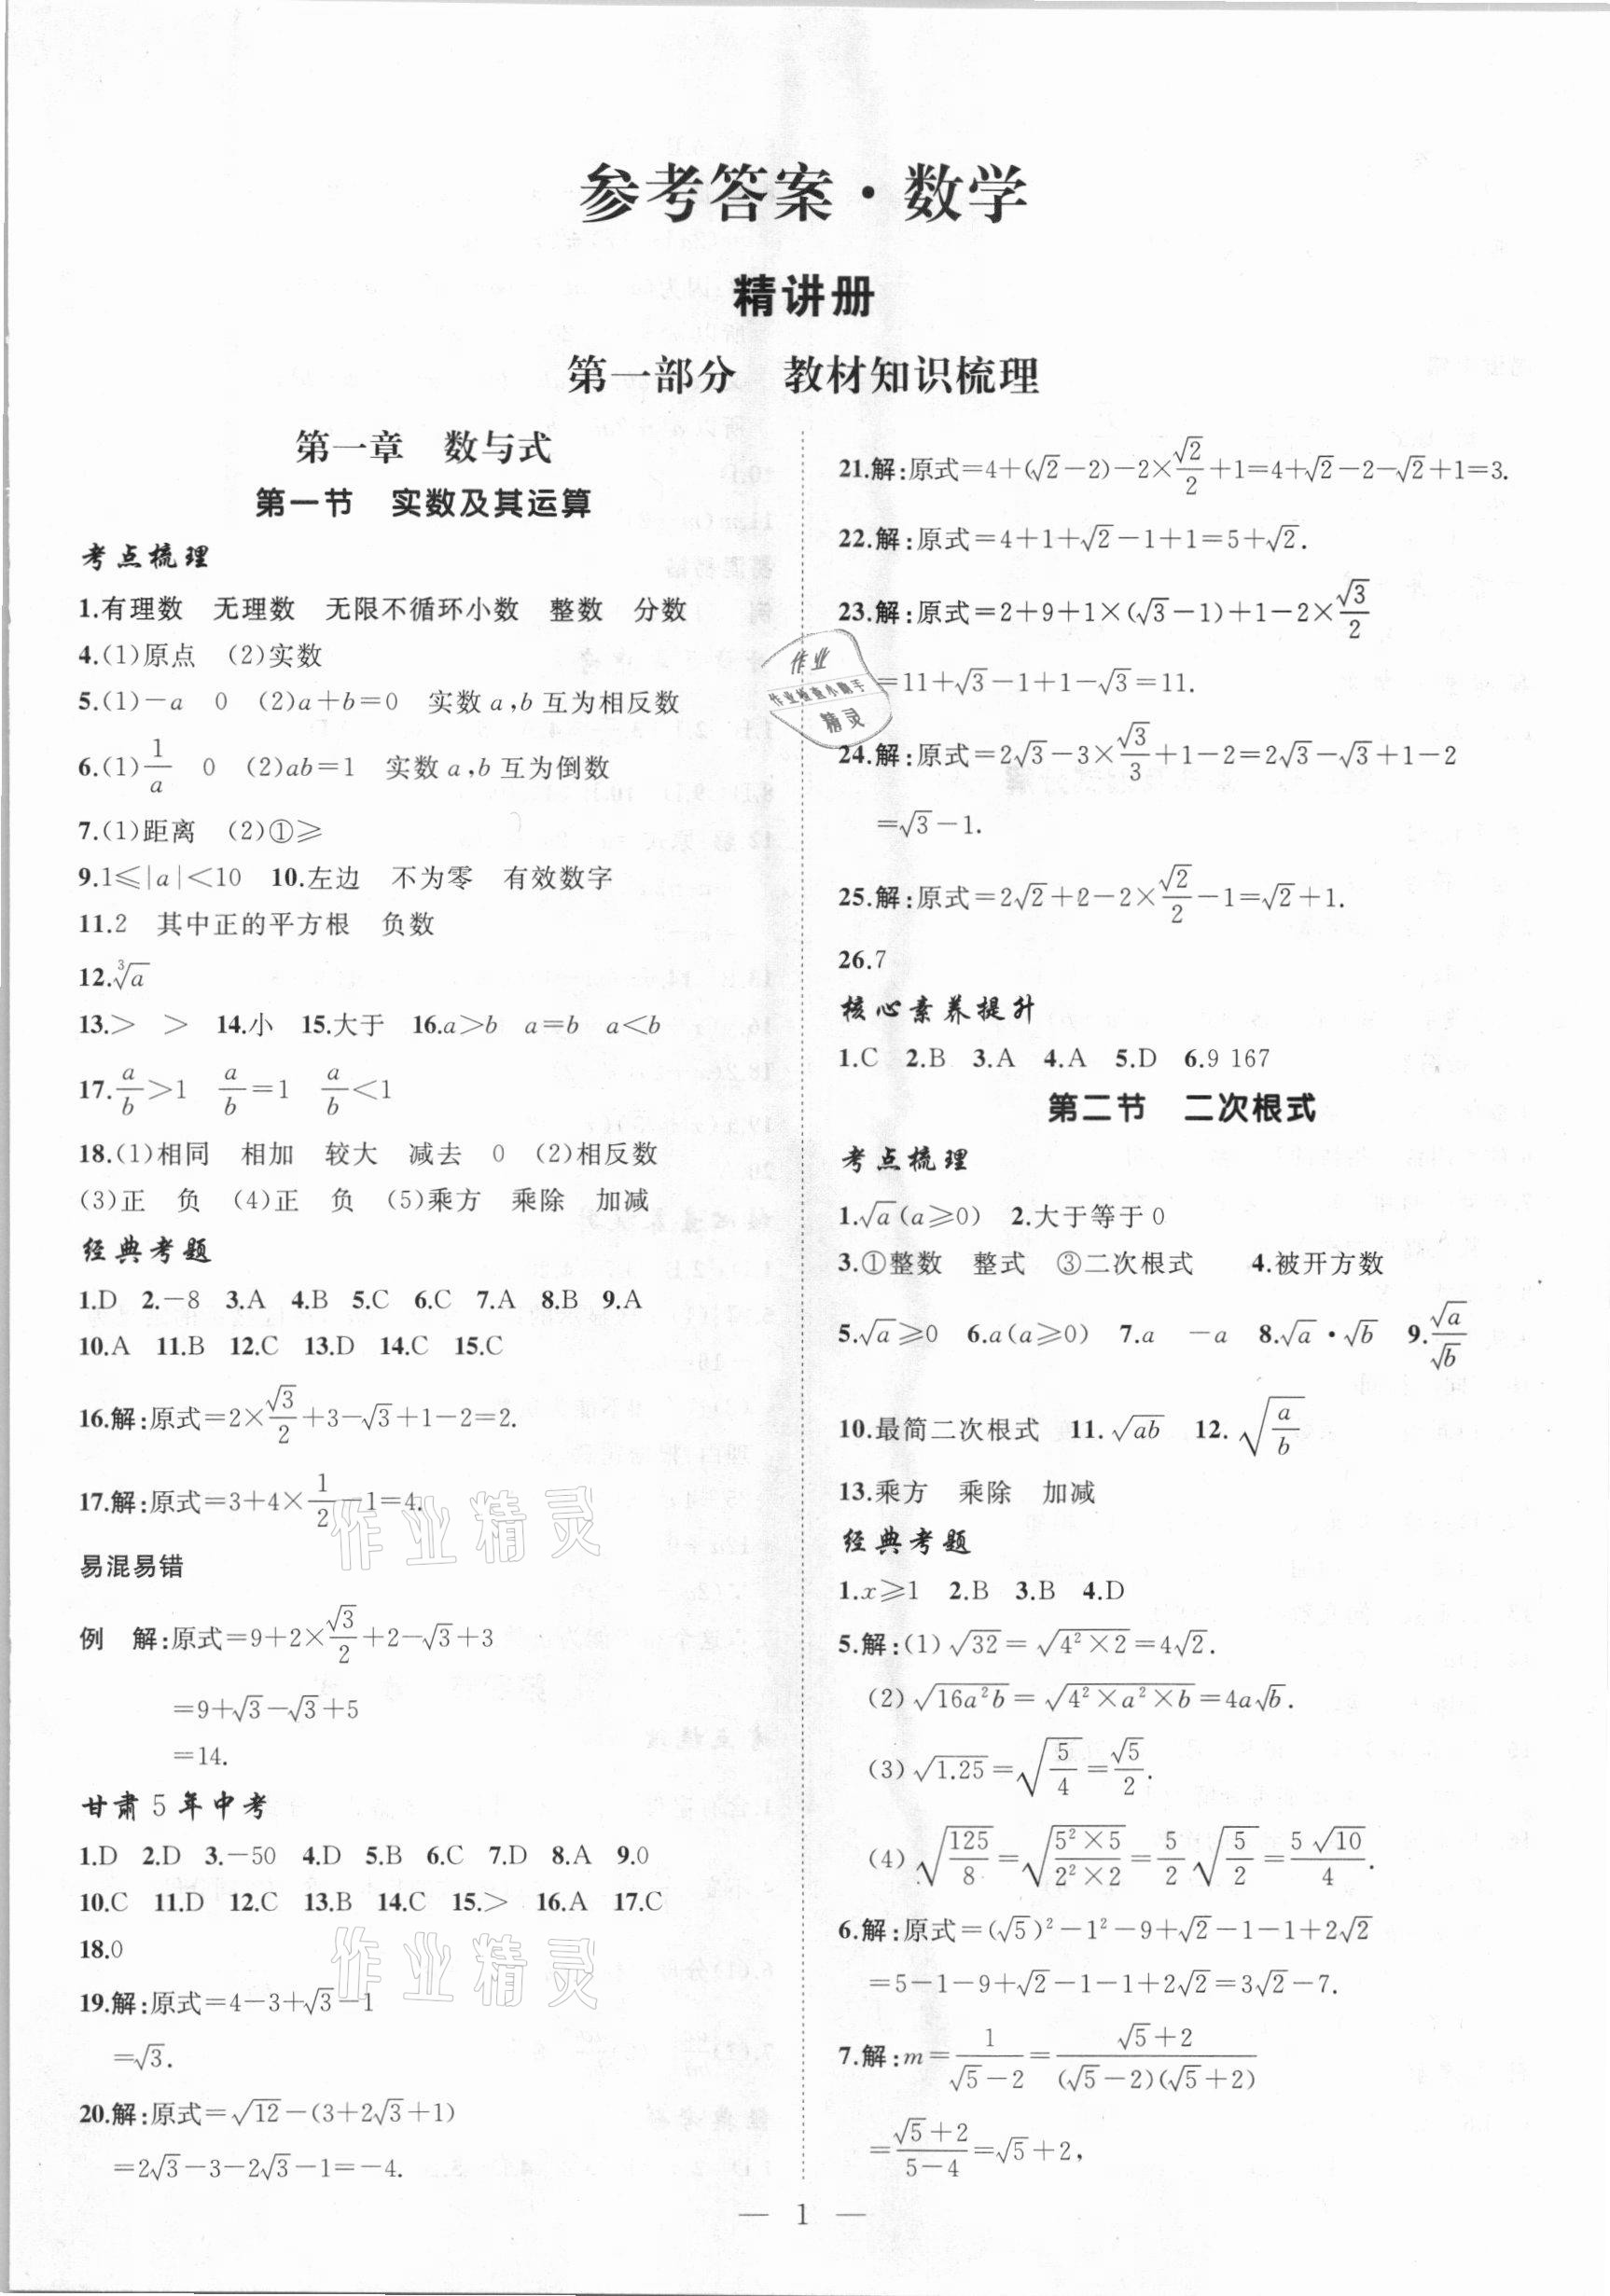 参考答案·数学
精讲册
第一部分　教材知识梳理
第一章　数与式
第一节　实数及其运算
考点梳理
1.有理数　无理数　无限不循环小数　整数　分数
4.(1)原点　(2)实数
5.(1)-a　0　(2)a+b=0　实数a,b互为相反数
6.(1)1/a　0　(2)ab=1　实数a,b互为倒数
7.(1)距离　(2)①≥
9.1≤|a|<10　10.左边　不为零　有效数字
11.2　其中正的平方根　负数
12.∛a
13.>　>　14.小　15.大于　16.a>b　a=b　a<b
17.a/b>1　a/b=1　a/b<1
18.(1)相同　相加　较大　减去　0　(2)相反数
(3)正　负　(4)正　负　(5)乘方　乘除　加减
经典考题
1.D　2.-8　3.A　4.B　5.C　6.C　7.A　8.B　9.A
10.A　11.B　12.C　13.D　14.C　15.C
16.解:原式=2×√3/2+3-√3+1-2=2.
17.解:原式=3+4×1/2-1=4.
易混易错
例　解:原式=9+2×√3/2+2-√3+3
=9+√3-√3+5
=14.
甘肃5年中考
1.D　2.D　3.-50　4.D　5.B　6.C　7.D　8.A　9.0
10.C　11.D　12.C　13.B　14.C　15.>　16.A　17.C
18.0
19.解:原式=4-3+√3-1
=√3.
20.解:原式=√12-(3+2√3+1)
=2√3-3-2√3-1=-4.
21.解:原式=4+(√2-2)-2×√2/2+1=4+√2-2-√2+1=3.
22.解:原式=4+1+√2-1+1=5+√2.
23.解:原式=2+9+1×(√3-1)+1-2×√3/2
=11+√3-1+1-√3=11.
24.解:原式=2√3-3×√3/3+1-2=2√3-√3+1-2
=√3-1.
25.解:原式=2√2+2-2×√2/2-1=√2+1.
26.7
核心素养提升
1.C　2.B　3.A　4.A　5.D　6.9 167
第二节　二次根式
考点梳理
1.√a(a≥0)　2.大于等于0
3.①整数　整式　③二次根式　4.被开方数
5.√a≥0　6.a(a≥0)　7.a　-a　8.√a·√b　9.√a/√b
10.最简二次根式　11.√(ab)　12.√(a/b)
13.乘方　乘除　加减
经典考题
1.x≥1　2.B　3.B　4.D
5.解:(1)√32=√(4²×2)=4√2.
(2)√(16a²b)=√(4²×a²×b)=4a√b.
(3)√1.25=√(5/4)=√5/2.
(4)√(125/8)=√((5²×5)/(2²×2))=5/2√(5/2)=5√10/4.
6.解:原式=(√5)²-1²-9+√2-1-1+2√2
=5-1-9+√2-1-1+2√2=3√2-7.
7.解:m=1/(√5-2)=(√5+2)/((√5-2)(√5+2))
=(√5+2)/(5-4)=√5+2,
— 1 —
作业
作业检查小助手
精灵
作业精灵
作业精灵